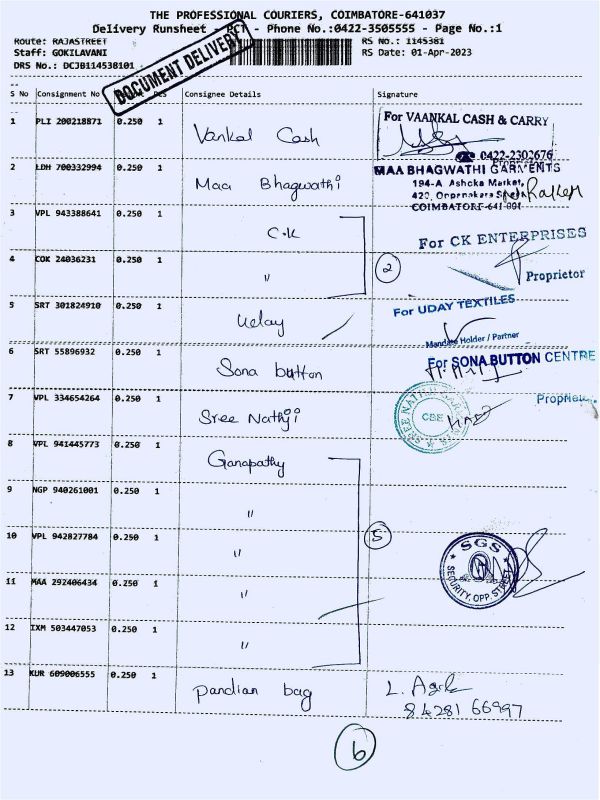 THE PROFESSIONAL COURIERS, COIMBATORE-641037
Delivery Runsheet - PCT - Phone No.:0422-3505555 - Page No.:1
Route: RAJASTREET RS No.: 1145381
Staff: GOKILAVANI RS Date: 01-Apr-2023
DRS No.: DCJB114538101
DOCUMENT DELIVERY
S No Consignment No Pcs Consignee Details Signature
1 PLI 200218871 0.250 1 Vankal Cash For VAANKAL CASH & CARRY
0422-2302676
Proprietor
2 LDH 700332994 0.250 1 Maa Bhagwathi MAA BHAGWATHI GARMENTS
194-A Ashoka Market,
COIMBATORE-641 001
3 VPL 943388641 0.250 1 C.K For CK ENTERPRISES
4 COK 24036231 0.250 1 " 2 Proprietor
5 SRT 301824910 0.250 1 Uday For UDAY TEXTILES
Holder / Partner
6 SRT 55896932 0.250 1 Sona button For SONA BUTTON CENTRE
7 VPL 334654264 0.250 1 Sree Nathji CBE Proprietor
8 VPL 941445773 0.250 1 Ganapathy
9 NGP 940261001 0.250 1 "
10 VPL 942827784 0.250 1 " 5 SGS
SECURITY, OPP. STREET
11 MAA 292406434 0.250 1 "
12 IXM 503447053 0.250 1 "
13 KUR 609006555 0.250 1 pandian bag L.
84281 66997
6